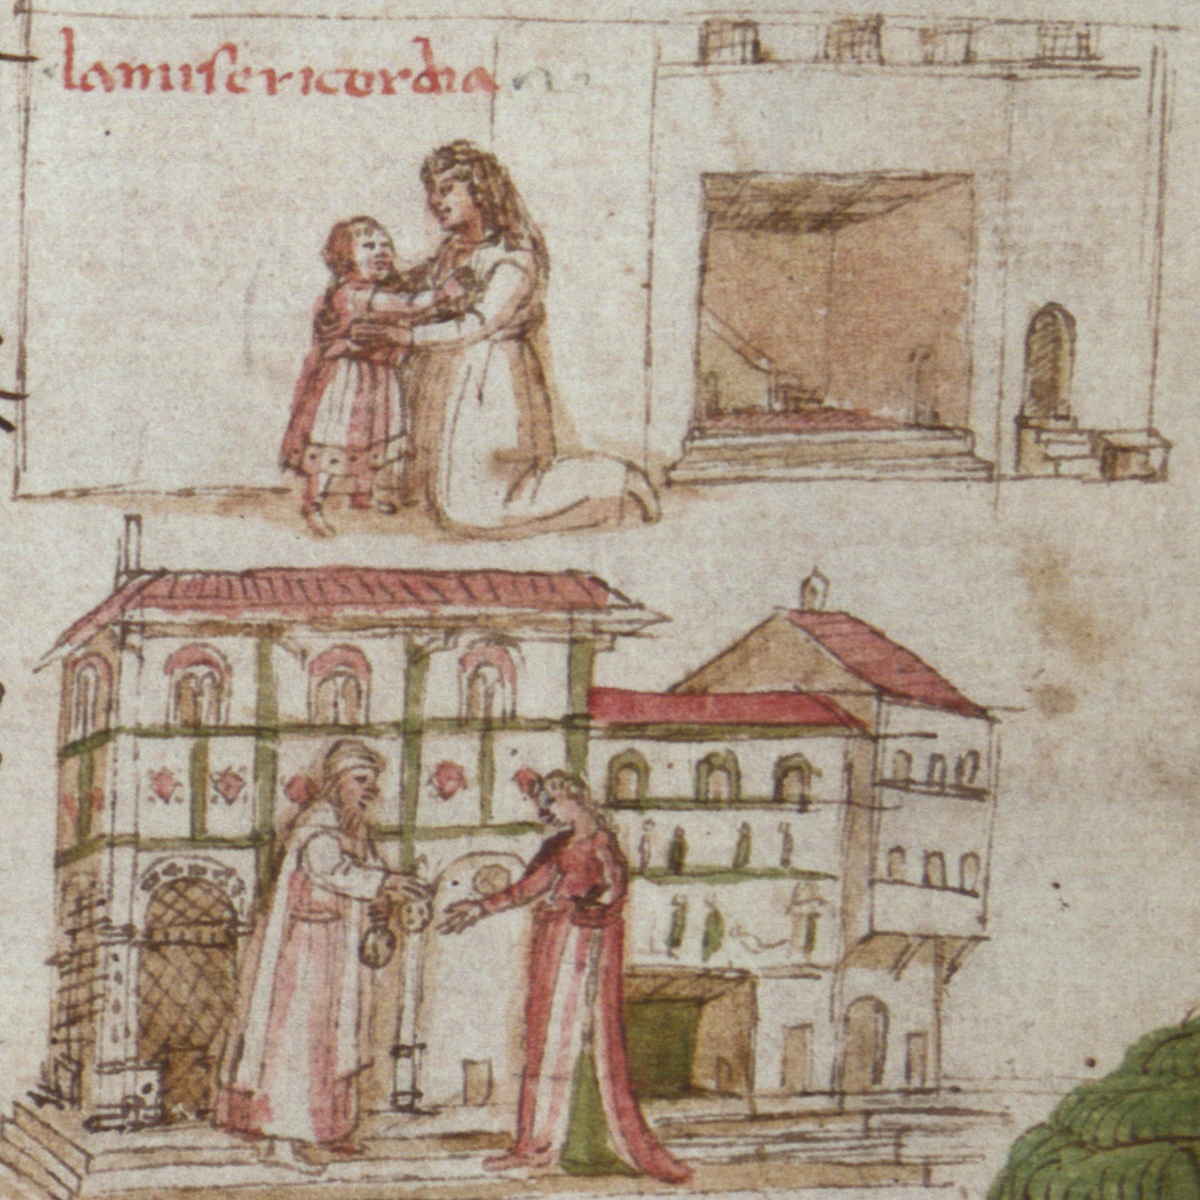 la misericordia